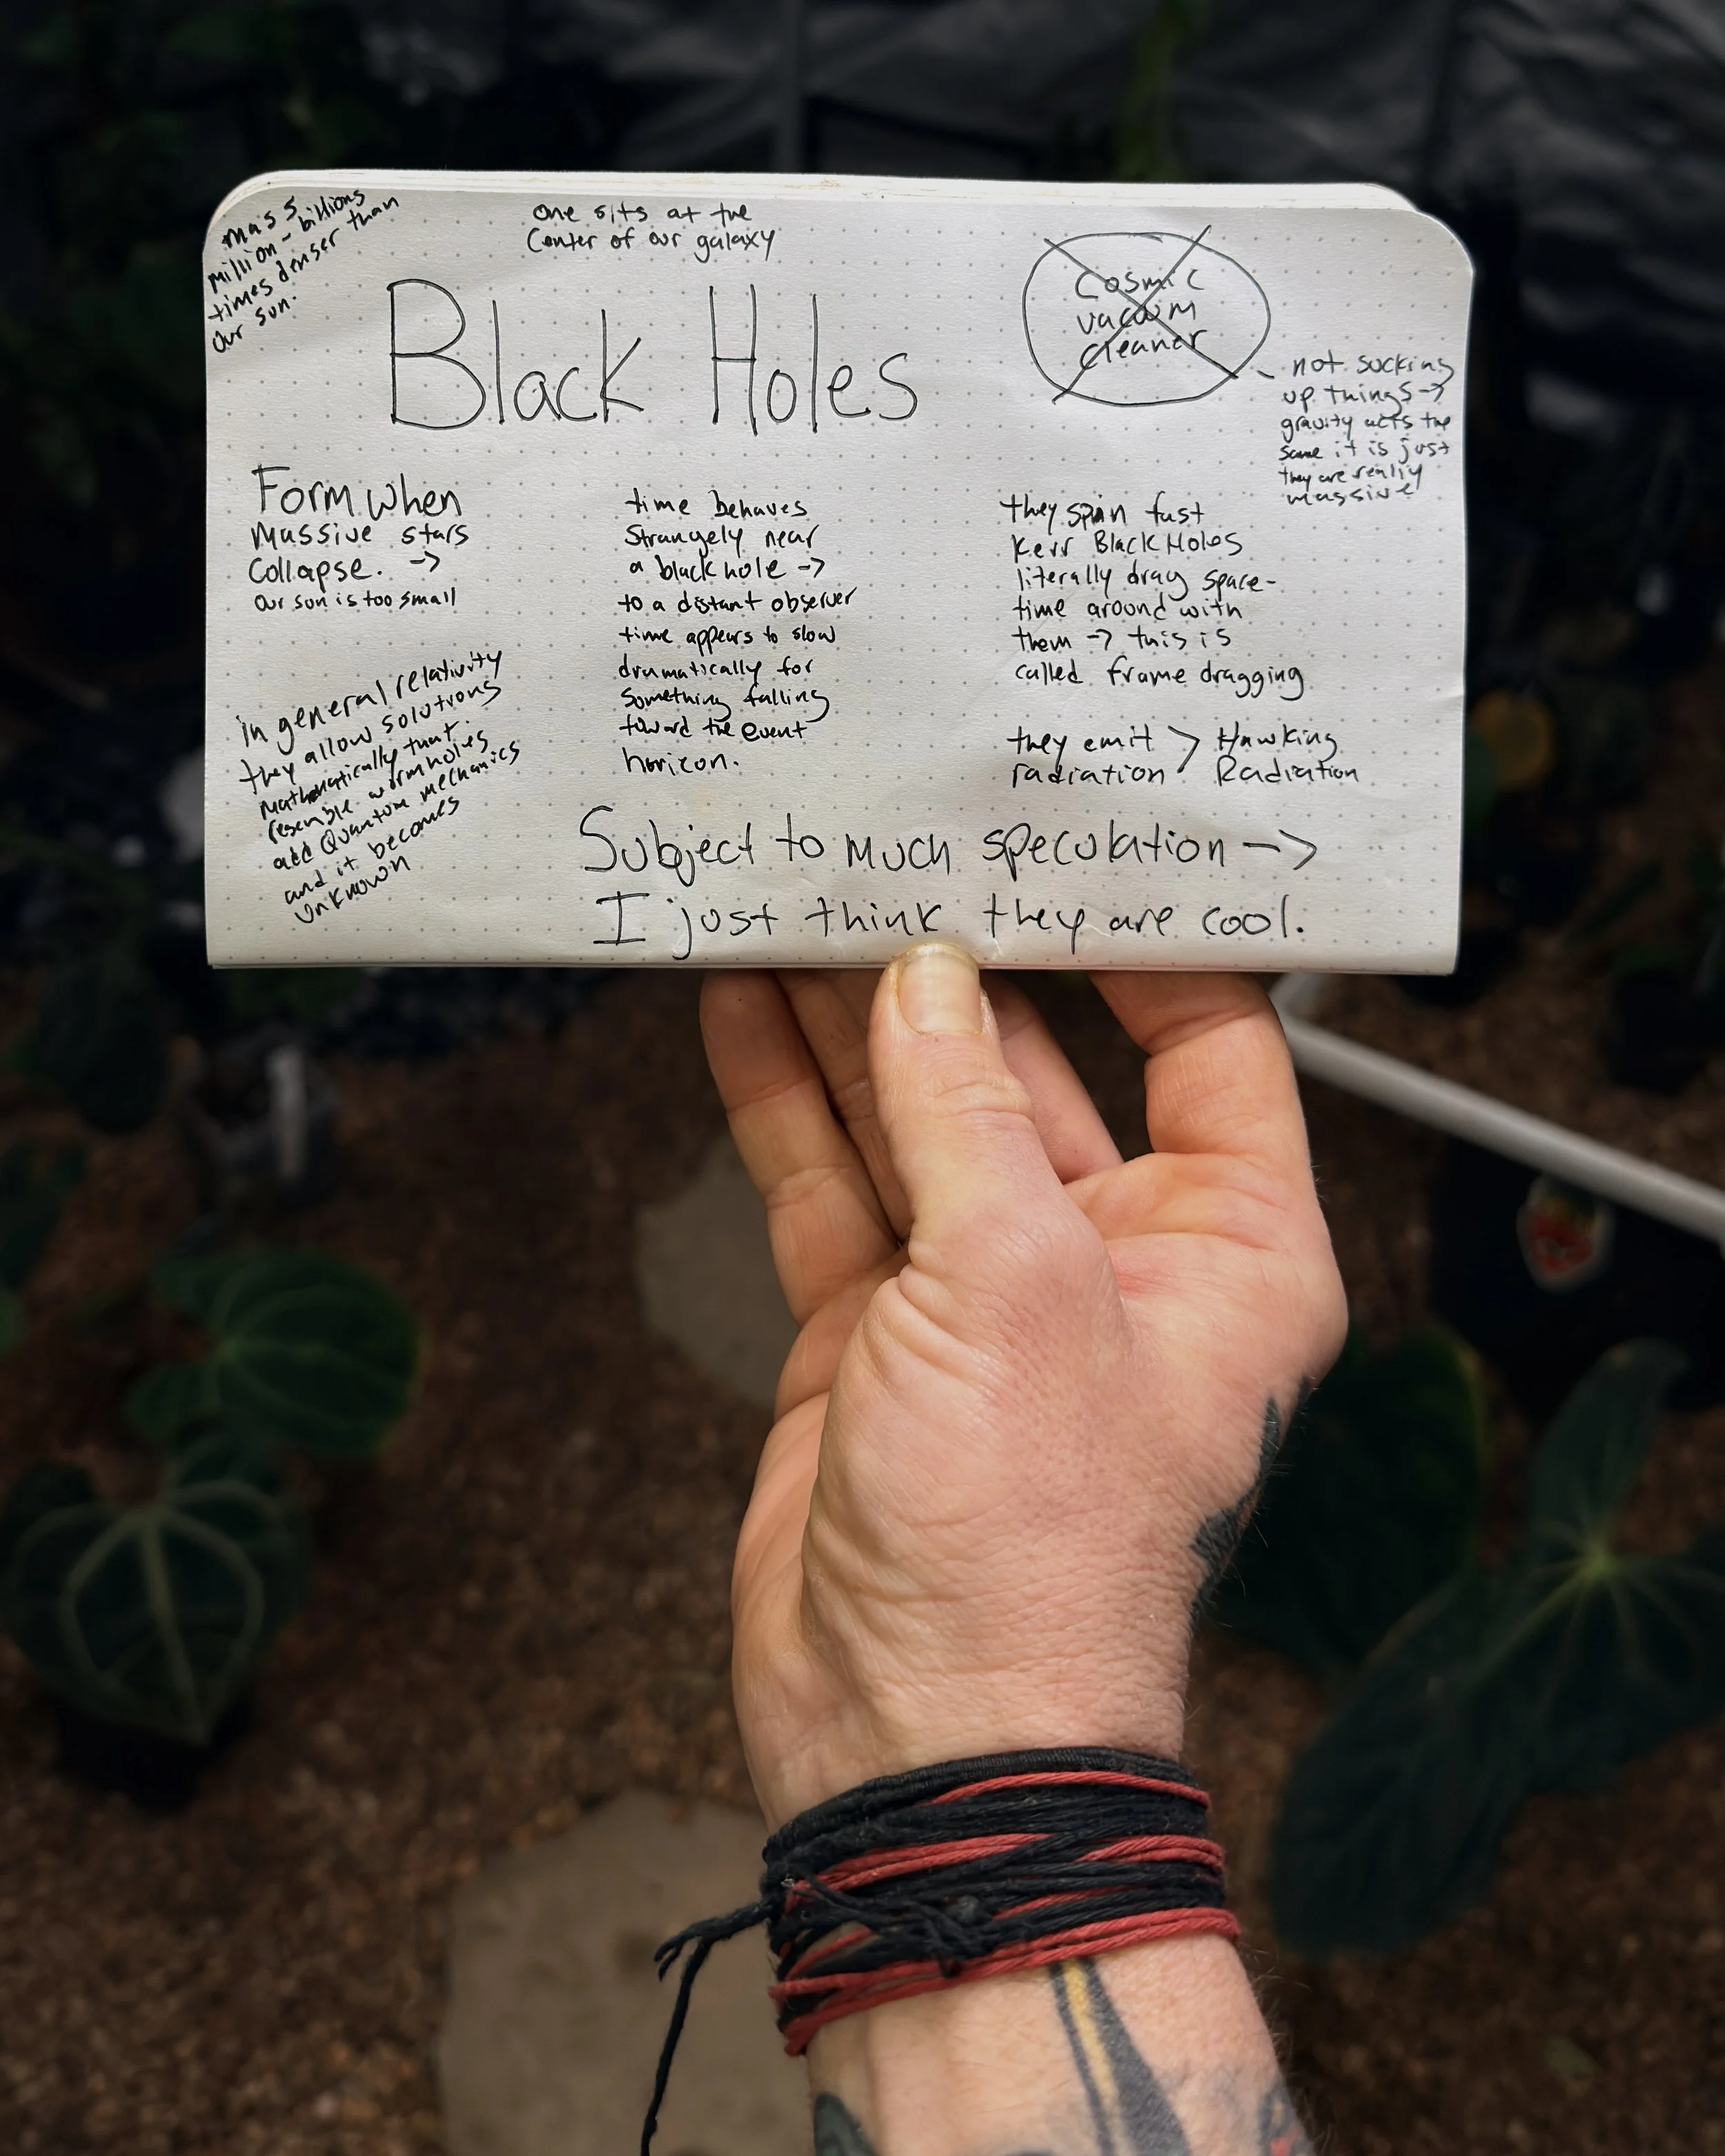 mass
million - billions
times denser than
our sun.
one sits at the
Center of our galaxy
Black Holes
Cosmic
vacuum
cleaner
- not sucking
up things ->
gravity acts the
same it is just
they are really
massive
Form when
massive stars
Collapse. ->
our sun is too small
in general relativity
they allow solutions
mathematically that
resemble wormholes
add Quantum mechanics
and it becomes
unknown
time behaves
Strangely near
a black hole ->
to a distant observer
time appears to slow
dramatically for
something falling
toward the event
horizon.
they spin fast
Kerr Black Holes
literally drag space-
time around with
them -> this is
called frame dragging
they emit > Hawking
radiation Radiation
Subject to much speculation ->
I just think they are cool.